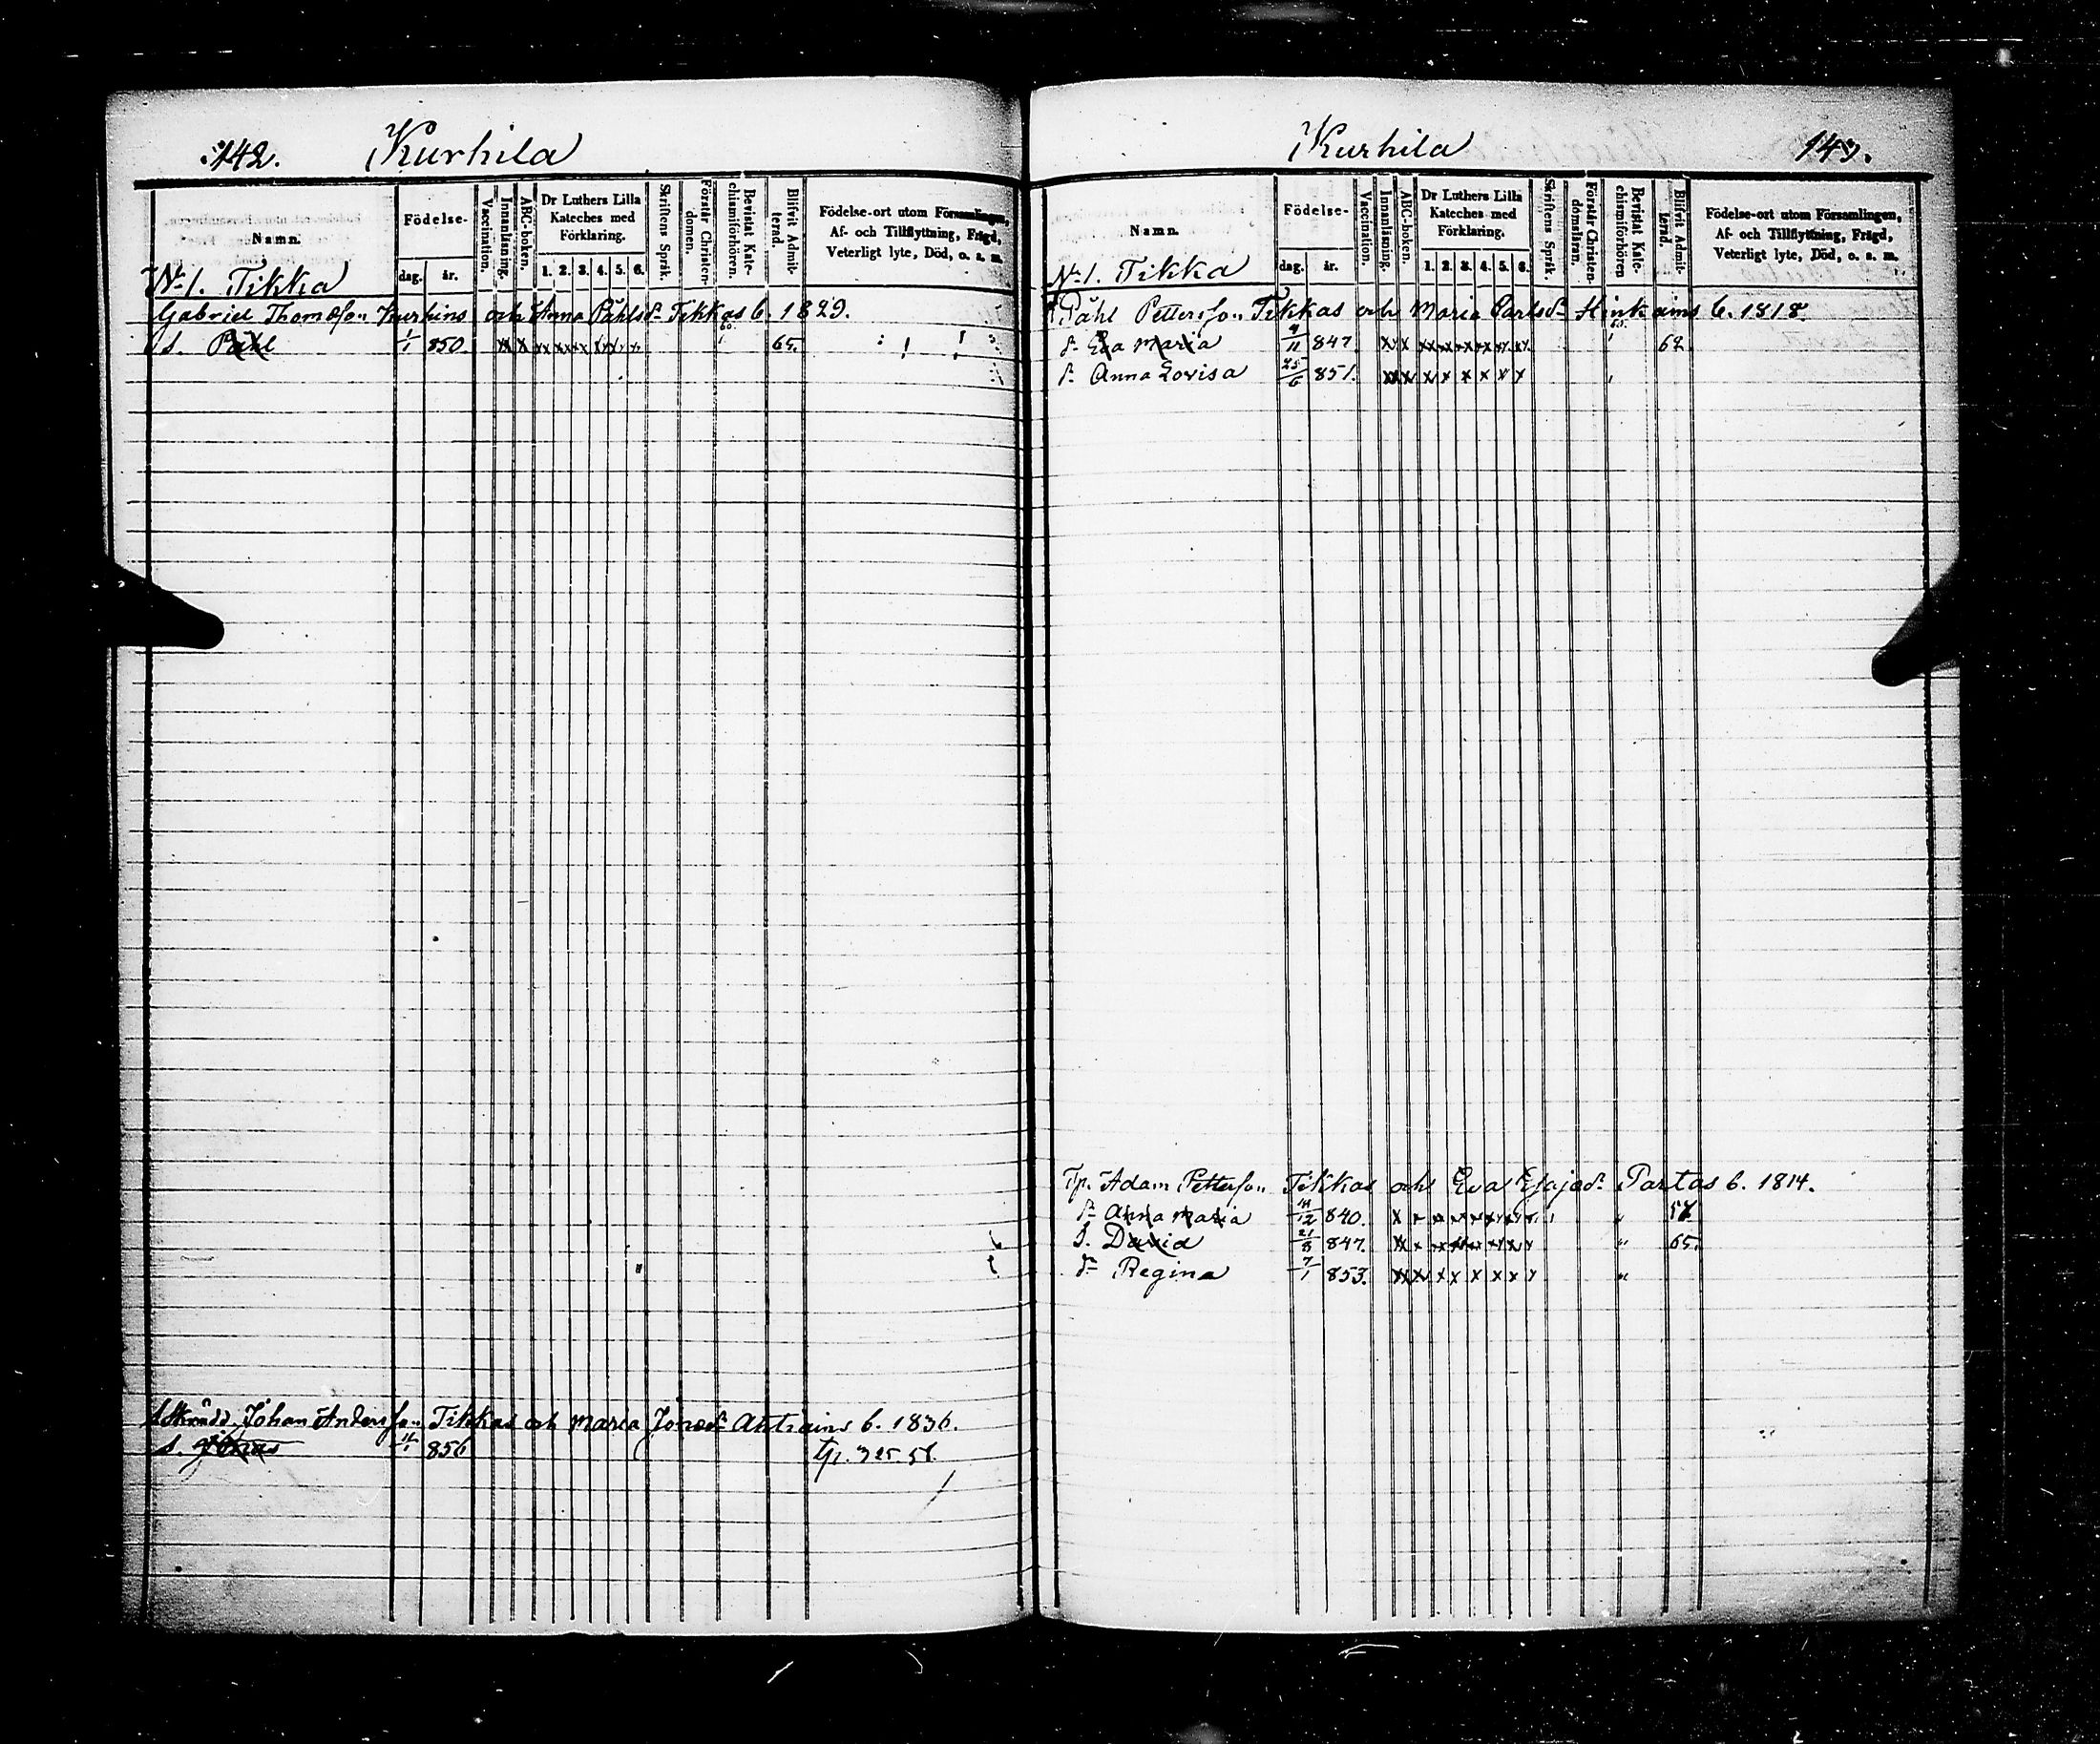 142. Kurhila
Namn. Födelse- dag. år. Vaccination. Innanläsning. ABC-boken. Dr Luthers Lilla Kateches med Förklaring. 1. 2. 3. 4. 5. 6. Skriftens Språk. Förstår Christen-domen. Bevistat Kate-chismiförhören. Blifvit Admit-terad. Födelse-ort utom Församlingen, Af- och Tillflyttning, Frägd, Veterligt lyte, Död, o. s. m.
No 1. Tikka
Gabriel Thomasson Kurhins och Anna Påhlsdr Tikkas b. 1829.
s. Påhl 1/1 850. x x x xx xx xx xx xx x 65.
Johan Andersson Tikkas och Maria Jonasdr b. 1836.
s. Jonas 11/1 856
Kurhila 143.
Namn. Födelse- dag. år. Vaccination. Innanläsning. ABC-boken. Dr Luthers Lilla Kateches med Förklaring. 1. 2. 3. 4. 5. 6. Skriftens Språk. Förstår Christen-domsläran. Bevistat Kate-chismiförhören Blifvit Admit-terad. Födelse-ort utom Församlingen, Af- och Tillflyttning, Frägd, Veterligt lyte, Död, o. s. m.
No 1. Tikka
Påhl Pettersson Tikkas och Maria Carlsdr Hinkains b. 1818.
dr Eva Maria 4/11 847 x x x xx xx xx xx xx xx 62
dr Anna Lovisa 25/6 851. xx x x x x x x x
Tp. Adam Pettersson Tikkas och Eva Esajadr Partas b. 1814.
dr Anna Maria 14/12 840. x x x x x x x x "
s. David 21/8 847. x x xx xx x x x x " 65.
dr Regina 7/1 853. xx x x x x x x x "